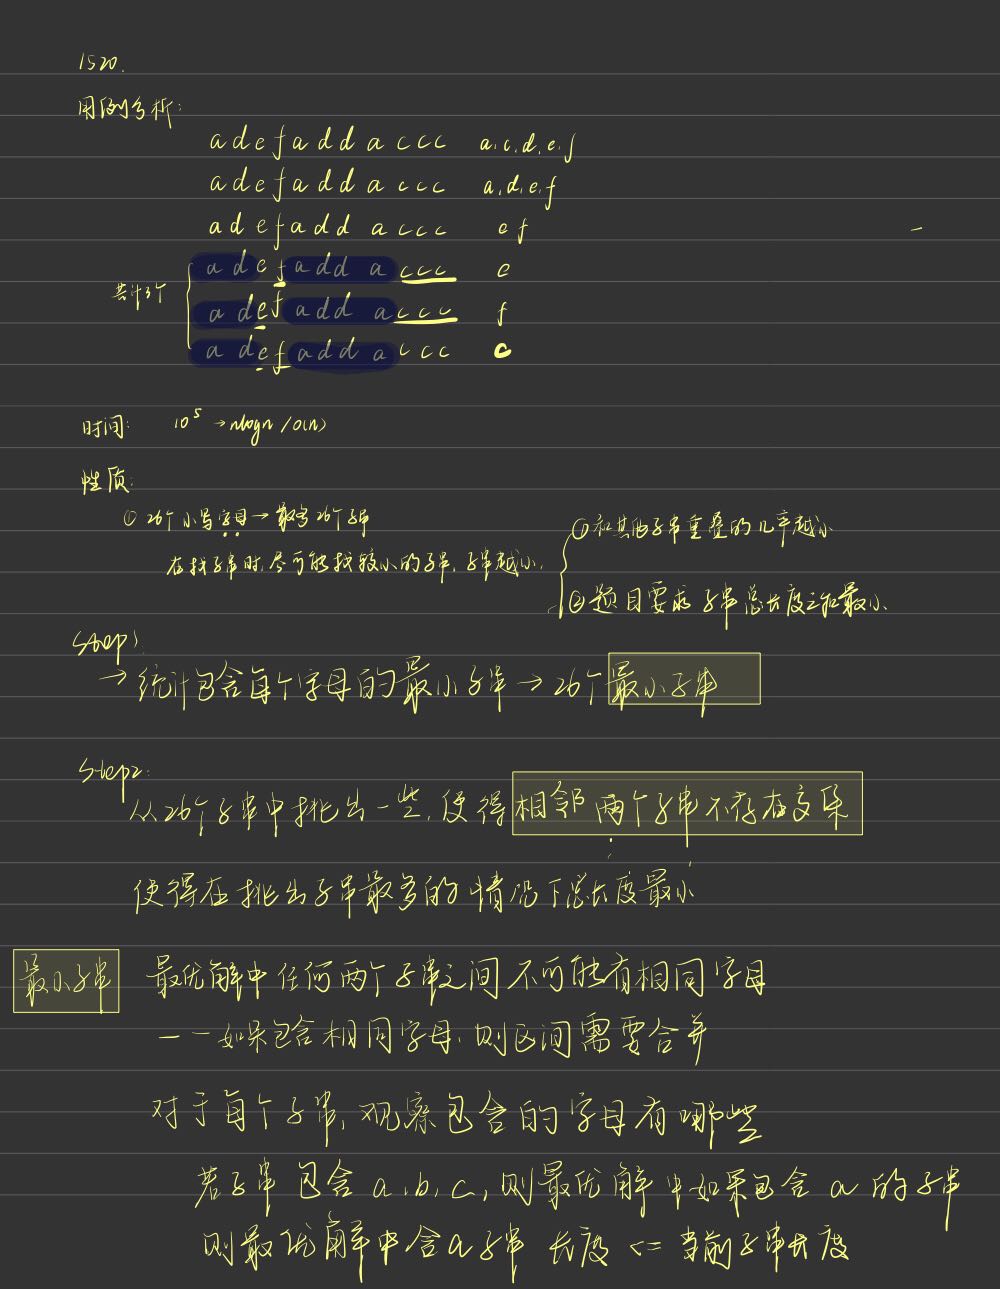 1520.
用例分析:
adefaddaccc a,c,d,e,f
adefaddaccc a,d,e,f
adefaddaccc e f
adefaddaccc e
共计3个 adefaddaccc f
adefaddaccc c
时间: 10^5 → nlogn / O(n)
性质:
① 26个小写字母 → 最多26个子串
在找子串时,尽可能找较小的子串,子串越小,
①和其他子串重叠的几率越小
②题目要求子串总长度之和最小
Step1
→ 统计包含每个字母的最小子串 → 26个最小子串
Step2:
从26个子串中挑出一些,使得相邻两个子串不存在交集
使得在挑出子串最多的情况下总长度最小
最小子串 最优解中任何两个子串之间不可能有相同字母
——如果包含相同字母,则区间需要合并
对于每个子串,观察包含的字母有哪些
若子串包含a,b,c,则最优解中如果包含a的子串
则最优解中含a子串长度 <= 当前子串长度